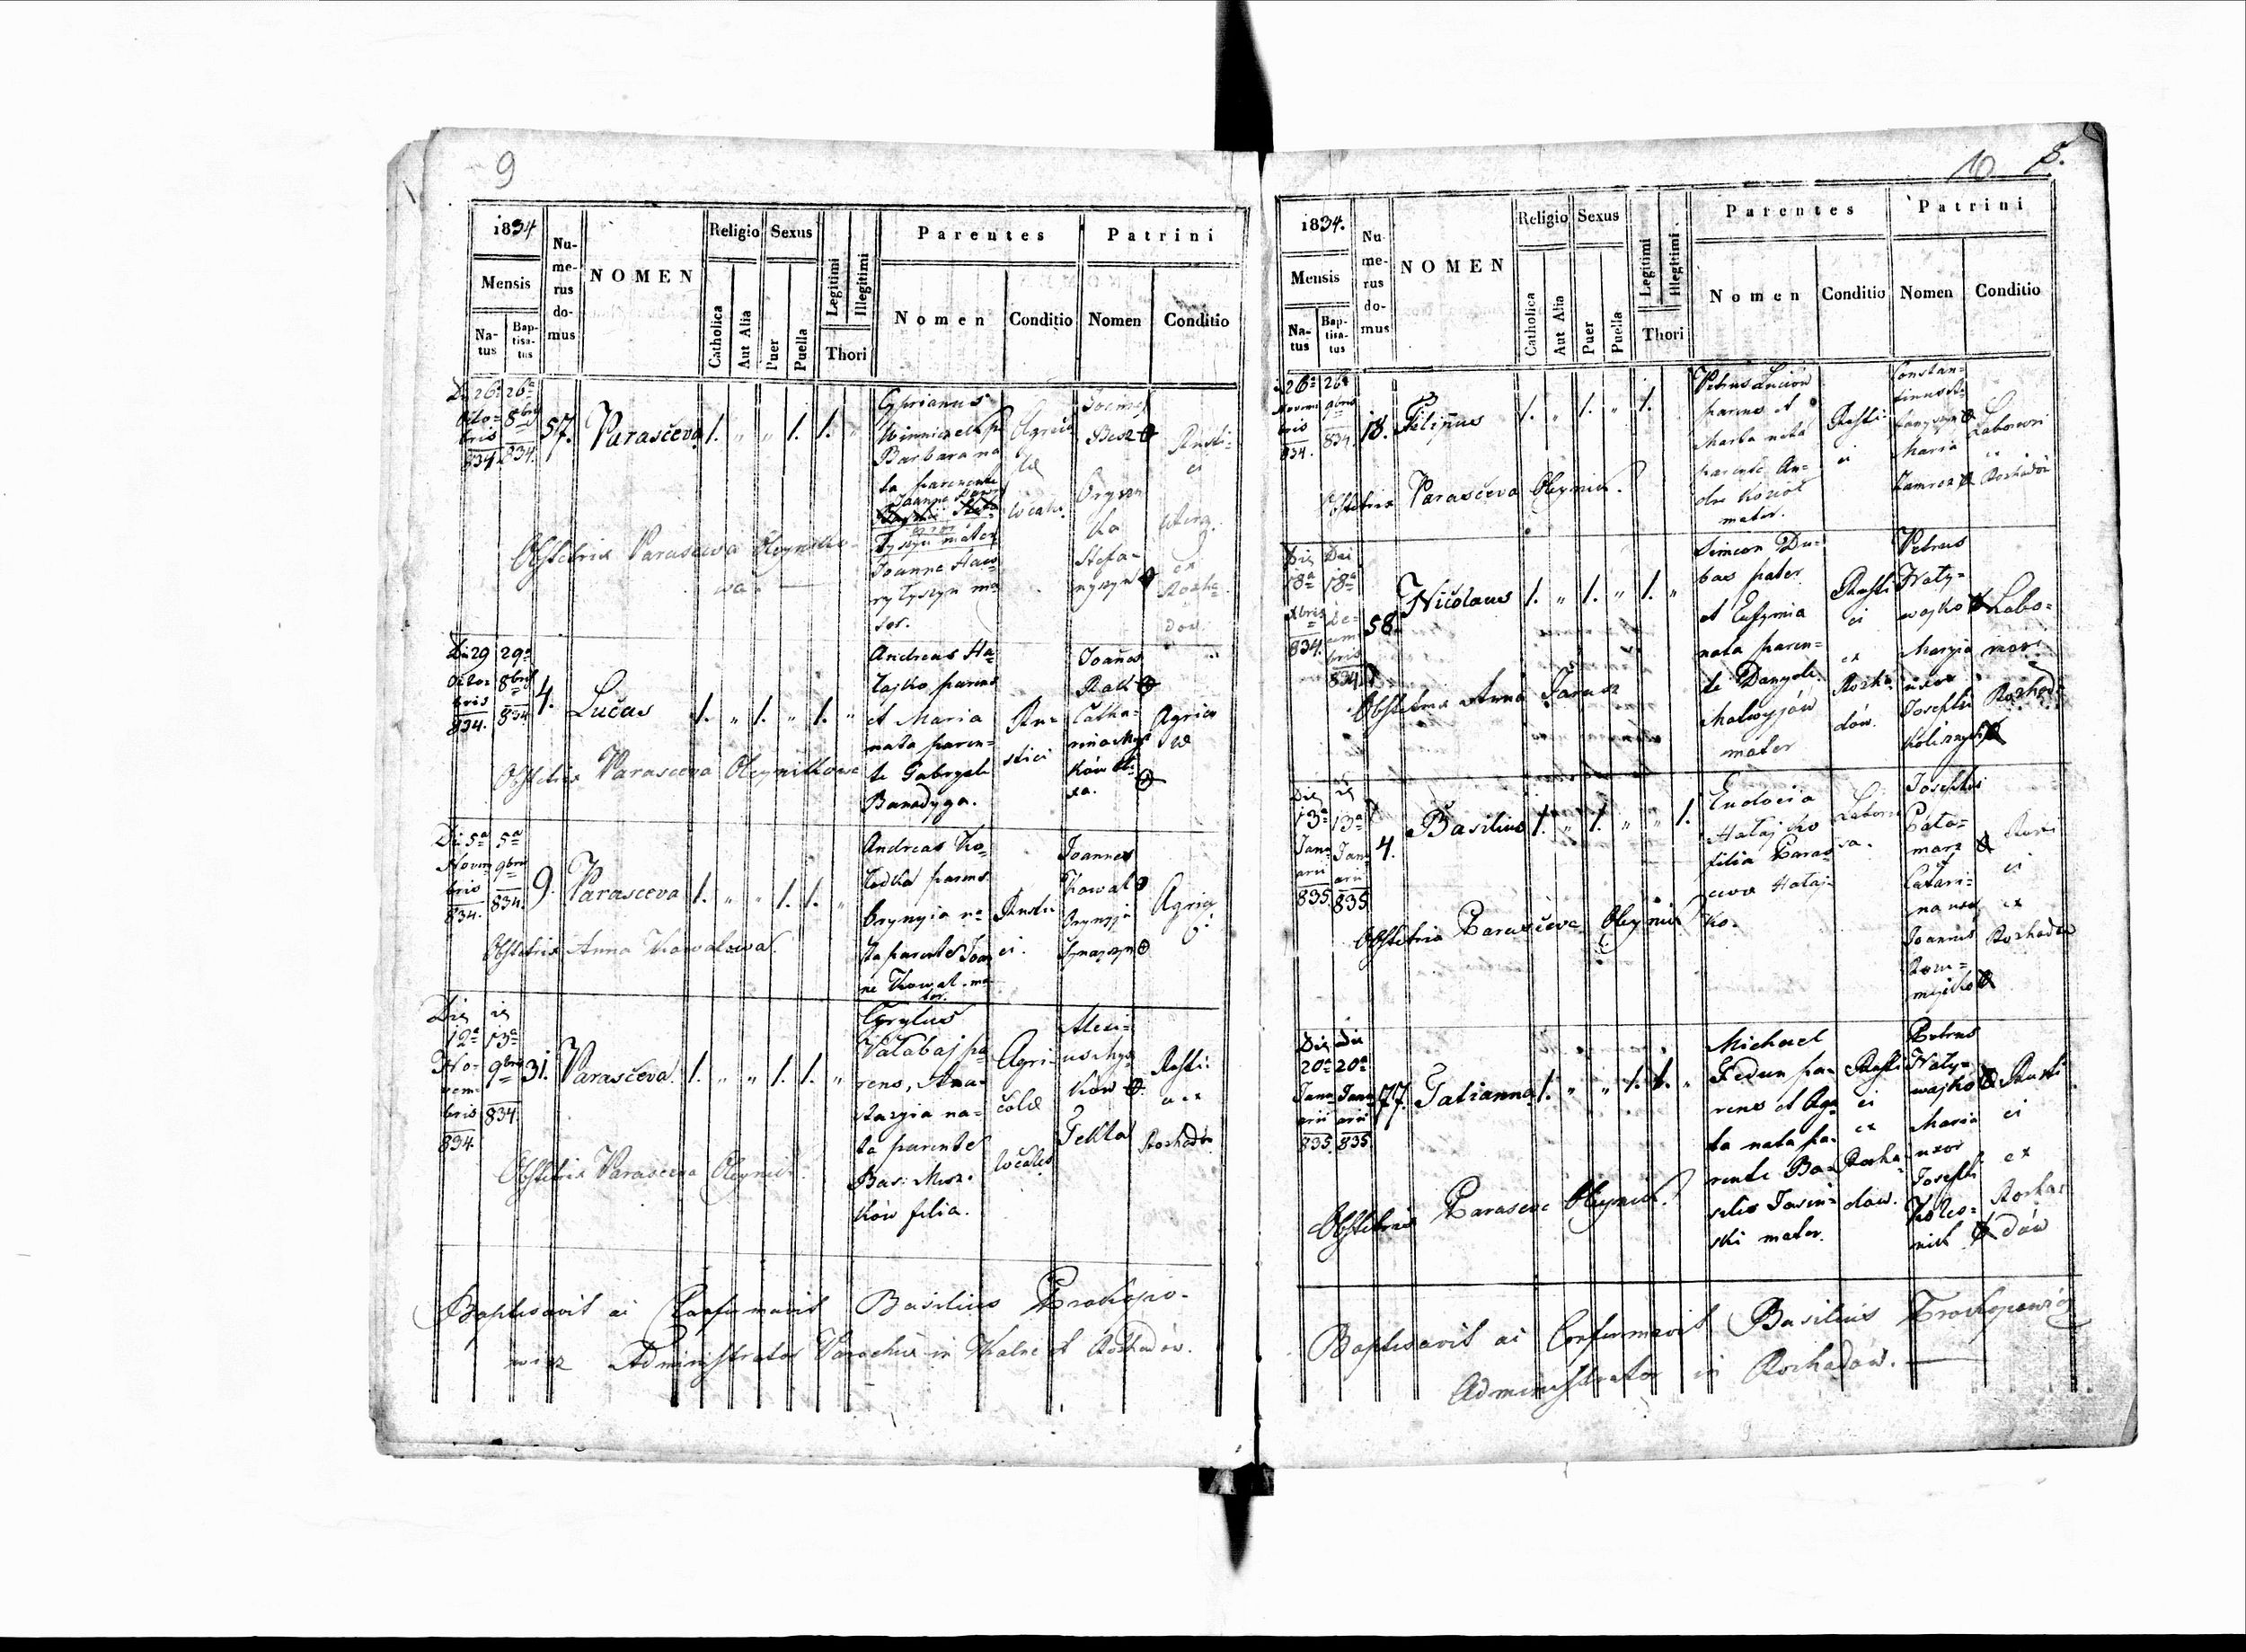 9
1834
Mensis
Na-
tus
Bap-
tisa-
tus
Nu-
me-
rus
do-
mus
NOMEN
Religio
Catholica
Aut Alia
Sexus
Puer
Puella
Legitimi
Illegitimi
Thori
Parentes
Nomen
Conditio
Patrini
Nomen
Conditio
26a 26a
Octo- 8bris
bris
834. 834.
57.
Parasceva 1. " " 1. 1. "
Cyprianus
Barbara na
ta
Joanne
mater
Joanne Haw
rytyszyn ma
ter.
Agrico
lae
locales
Besz
Rusti-
ci
ex
Rozha
dow
Obstetrix Parasceva Oleyniko
wa.
29 29a
Octo- 8bris
bris
834. 834
4.
Lucas 1. " 1. " 1. "
Andreas Ha-
łajko parens
et Maria
nata paren-
te Gabryele
Banadyga.
Ru-
stici
Joannes
Catha-
rina
ków
xa.
Agrico
lae
Obstetrix Parasceva Oleynikowa
5a 5a
Novem 9bris
bris
834. 834.
9.
Parasceva 1. " " 1. 1. "
Andreas Ko-
łodka parens
Grynyia na
ta parente Joan
ne Kowal ma
ter.
Rusti
ci.
Joannes
Kowal
Agrico
Obstetrix Anna Kowalowa.
Die
12a 13a
No- 9bris
vem
bris 834.
834.
31.
Parasceva. 1. " " 1. 1. "
Cyrylus
Wałabaj pa
rens, Ana-
stazyia na-
ta parente
Bas: Mys-
ków filia.
Agri-
colae
locales
Alexi-
us Mys
ków
Tekla
Rusti:
ex
Rozhadów
Obstetrix Parasceva Oleynik.
Baptisavit ac Confirmavit Basilius Prokopo-
wicz Administrator Parochiae in Kalne et Rozhadów.
10 5.
1834.
Mensis
Na-
tus
Bap-
tisa-
tus
Nu-
me-
rus
do-
mus
NOMEN
Religio
Catholica
Aut Alia
Sexus
Puer
Puella
Legitimi
Illegitimi
Thori
Parentes
Nomen
Conditio
Patrini
Nomen
Conditio
26a 26a
Novem 9bris
bris
834. 834.
18.
Filipus 1. " 1. " 1.
Petrus
parens et
Maria nata
parente An-
dre Kozioł
mater.
Rusti
ci
Constan-
tinus
Maria
Laborari
Rozhadów
Obstetrix Parasceva Oleynik.
Die Die
18a 18a
xbris De-
cem
834. bris
834.
58.
Nicolaus 1. " 1. " 1. "
Simeon Du-
bas pater
et Eufymia
nata paren-
te Danyele
mater
Rusti
ci
ex
Rozha
dów.
Petrus
Naty-
wajko
Maryia
uxor
Josephi
Labo-
rari
Rozhadó
Obstetrix Anna Jarosz
Die
13a 13a
Janu Janu
arii arii
835. 835
4.
Basilius 1. " 1. " " 1.
Eudocia
Hałajko
filia Paras
ceva Hałaj-
ko.
Labori
sa.
Josephus
Cata-
marz
Catari-
na uxor
Joannis
Rom-
Rusti
ci
ex
Rozhadów
Obstetrix Parasceva Oleynik
Die Die
20a 20a
Janu Janu
arii arii
835. 835.
77.
Tatianna 1. " " 1. 1. "
Michael
Fedun pa-
rens et Aga
ta nata pa-
rente Ba-
silio Jasin-
ski mater.
Rusti
ci
ex
Rozha-
dow.
Petrus
Naty-
wajko
Maria
uxor
Josephi
Koles-
nik
Rusti
ci
ex
Rozha-
dów
Obstetrix Parasceve Oleynik.
Baptisavit ac Confirmavit Basilius Prokopowicz
Administrator in Rozhadów.